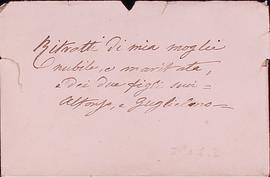 Ritratti di mia moglie
nubile, e maritata,
e dei due figli suoi
Alfonso, e Guglielmo